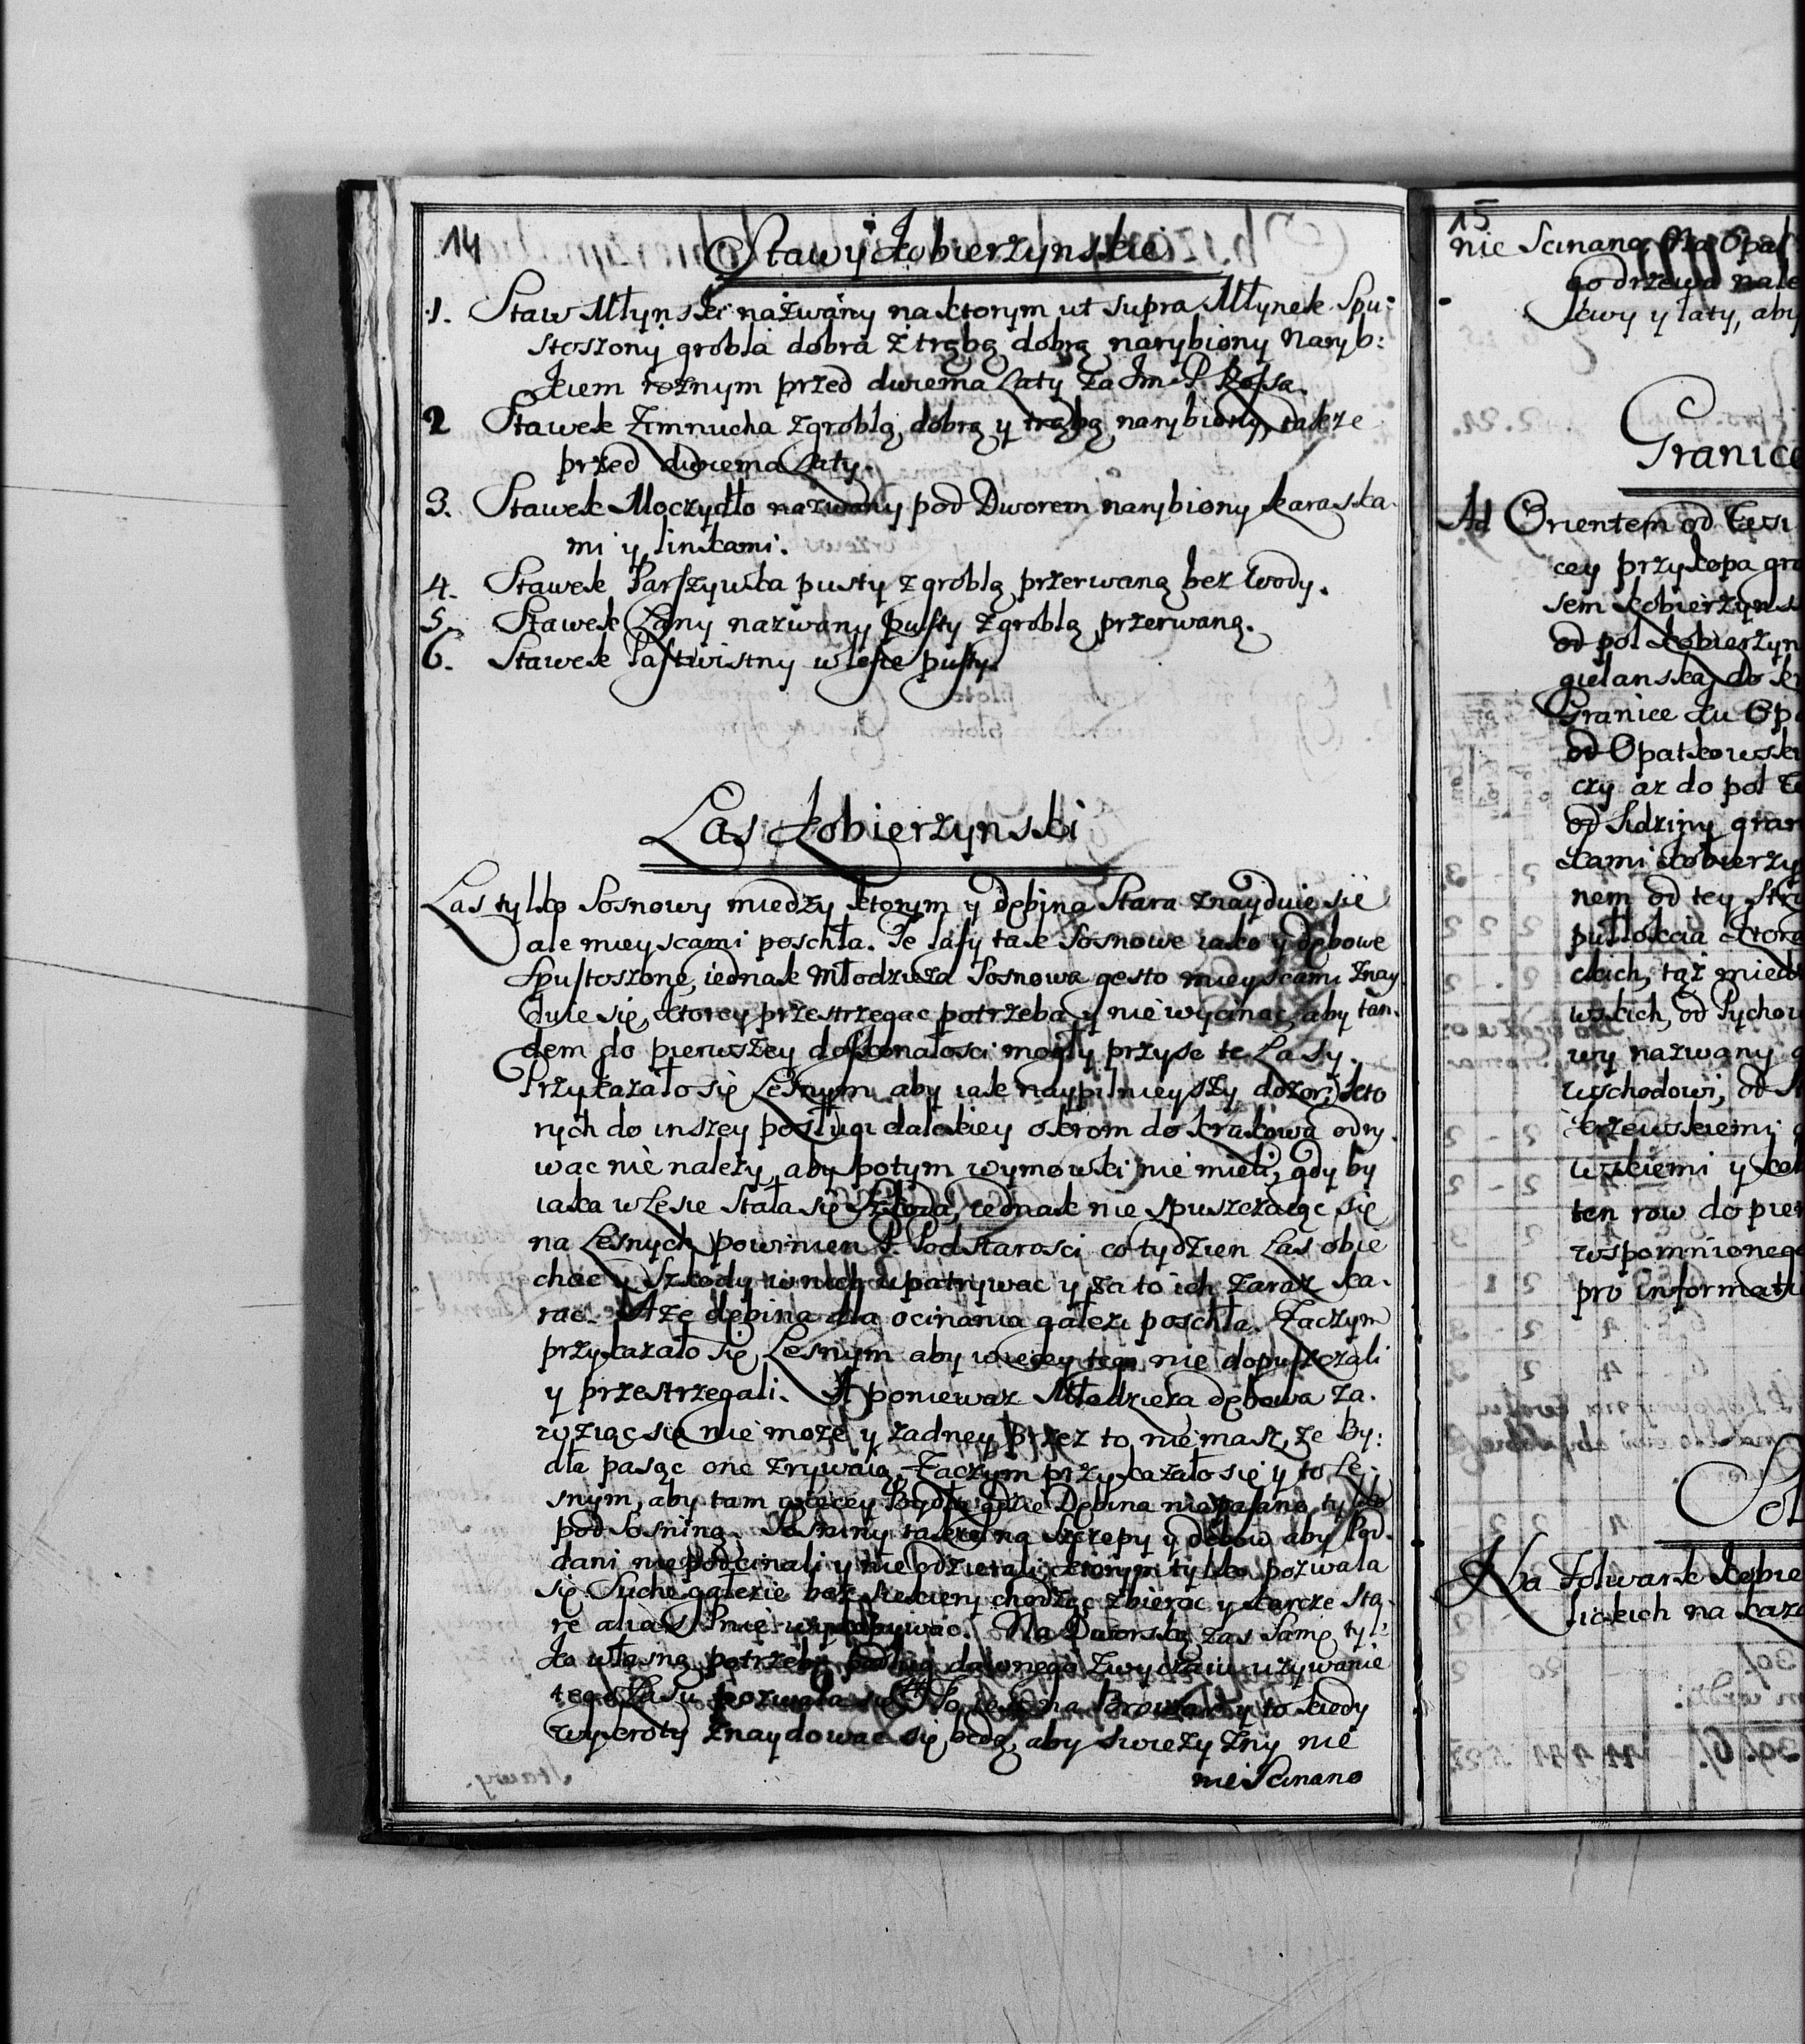 14
Stawy Kobierzynskie
1. Staw Młynski nazwany na ktorym ut supra Młynek Spu:
stoszony grobla dobra z trąbą dobrą narybiony Naryb:
kiem roznym przed dwiema Laty za Jm P. Rossa.
2 Stawek Zimnucha z groblą dobrą y trąbą narybiony także
przed dwiema Laty.
3. Stawek Moczydło nazwany pod Dworem narybiony karaska
mi y linkami.
4. Stawek Parszywka pusty z groblą przerwaną bez wody.
5. Stawek Łąny nazwany pusty z groblą przerwaną.
6. Stawek Pastwistny w lesie pusty.
Las Kobierzynski
Las tylko Sosnowy miedzy ktorym y dębina Stara znayduie się
ale mieyscami poschła. Te lasy tak Sosnowe iako y dębowe
Spustoszone, iednak Młodzieza Sosnowa gęsto mieyscami znay
duie się, ktorey przestrzegac potrzeba y nie wycinac, aby tan
dem do pierwszey doskonałosci mogły przyść te Lasy.
Przykazało się Lesnym aby iak naypilnieyszy dozor, kto
rych do inszey posługi dalekiey okrom do krakowa odry
wac nie nalezy, aby potym wymowki nie mieli, gdy by
iaka w Lesie Stała się Szkoda, iednak nie spuszczaiąc się
na Lesnych powinien P. Podstarosci co tydzien Las obie
chac y Szkody w nich upatrywac y za to ich zaraz ka
rac. A ze dębina dla ocinania gałęzi poschła. Zaczym
przykazało się Lesnym aby więcey tego nie dopuszczali
y przestrzegali. A poniewaz Młodzieza dębowa za
wziąc się nie moze y zadney przez to nie masz, ze By:
dła pasąc one zrywaią, Zaczym przykazało się y to Le
snym, aby tam więcey Bydła gdzie Dębina nie pasano, tylko
pod Sosniną. Sosniny takze na Szczepy y dębow aby Pod
dani nie podcinali y nie odzierali, ktorym tylko pozwala
się Suche gałezie bez siekiery chodząc zbierac y karcze Sta
re alias Pnie wykopywac. Na Dworską zas Samę tyl
ko własną potrzebę podług dawnego zwyczaiu uzywanie
tego Lasu pozwala się. To iest na Browar y to kiedy
wykroty znaydowac się będą, aby swiezyzny nie
nie Scinano
15
nie Scinano, Na Opał
go drzewa nale
lewy y laty, aby
Granice
Ad Orientem od
cey przykopa gra
sem kobierzyns
od pol kobierzyn
gielanską do
Granice ku Opa
od Opatkowski
czy az do pol
od Sidziny gran
kami kobierzy
nem od tey Str
puł łokcia ktora
ckich, tąz miedz
wskich, od Pychow
wy nazwany
wschodowi, od
krzewskiemi
wskiemi y kob
ten row do pier
wspomnionego
pro informati
Na Folwark kobie
lickich na kazd